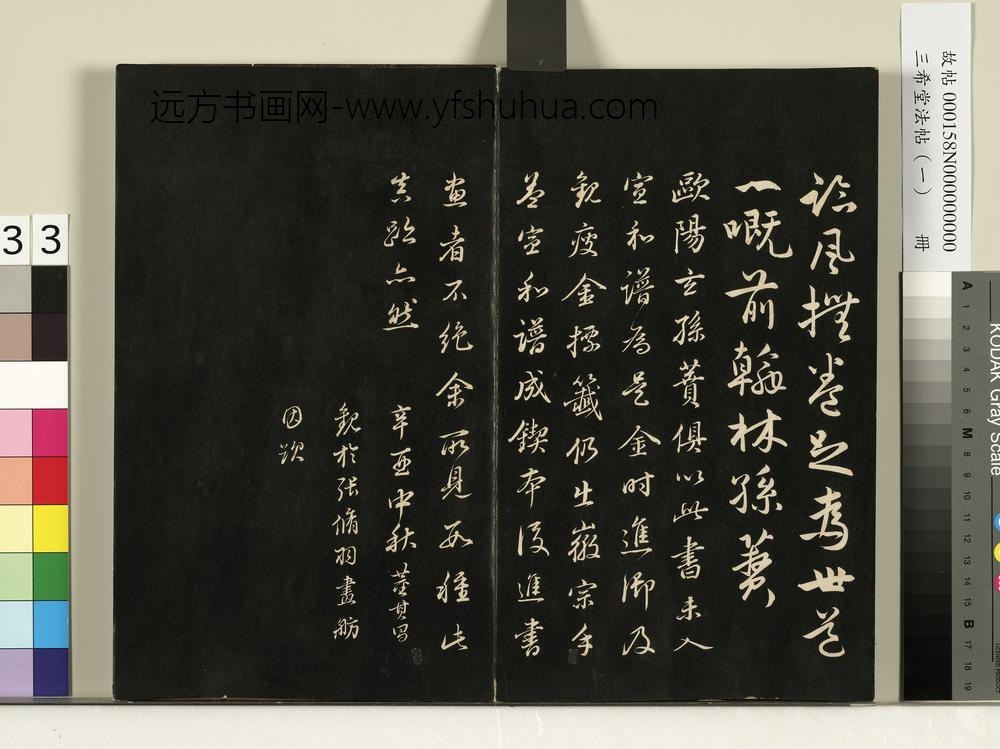 远方书画网-www.yfshuhua.com
故帖 000158N000000000
三希堂法帖（一） 冊
論風撫卷足為世道
一嘅前翰林孫蕡
歐陽玄孫蕡俱以此書未入
宣和譜為是金時進御及
觀瘦金標籤仍出徽宗手
蓋宣和譜成鍥本後進書
畫者不絕余所見數種此
真跡亦然
辛酉中秋董其昌
觀於張脩羽畫舫
因題
33
KODAK Gray Scale
A 1 2 3 4 5 6 M 8 9 10 11 12 13 14 15 B 17 18 19